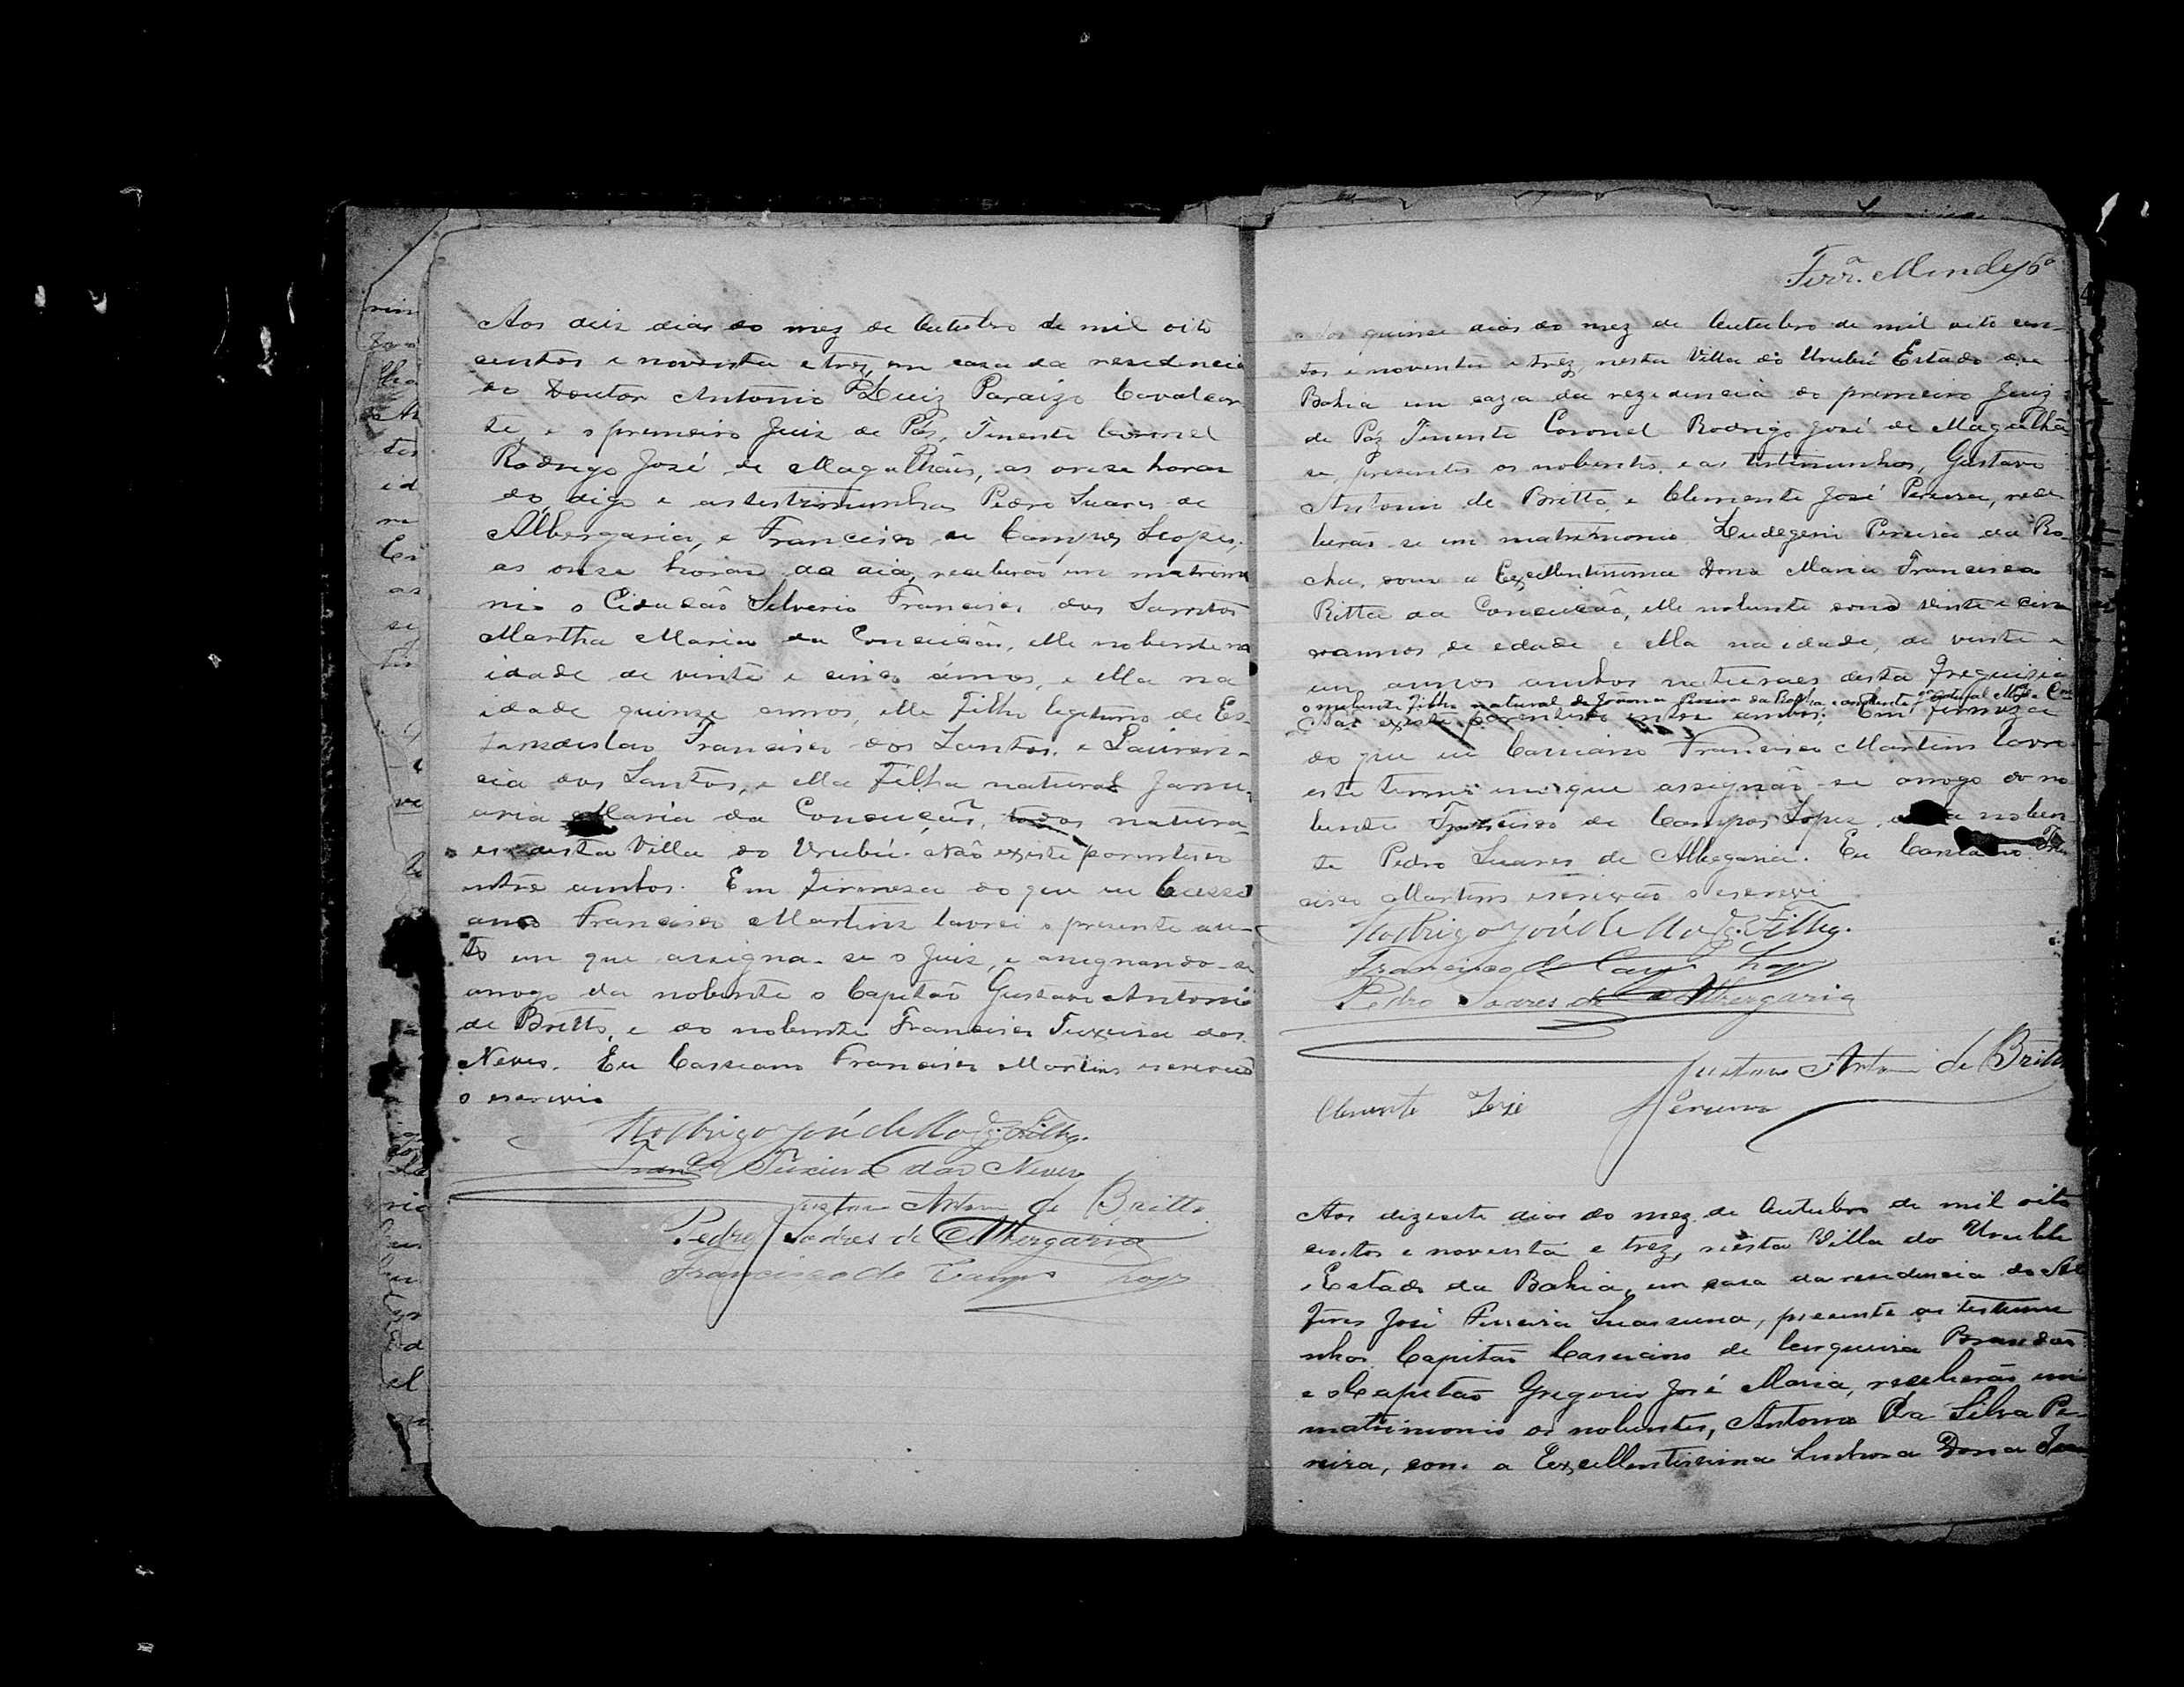 Aos deis dias do mez de Outubro de mil oito
centos e noventa e trez, em casa da residencia
do Doutor Antonio Luiz Paraizo Cavalcan
te, e o premeiro Juiz de Páz, Tenente Coronel
Rodrigo José de Magalhães, as onse horas
do, digo e as testimunhas Pedro Suares de
Albergaria, e Francisco de Campos Lopes,
as onse horas do dia, receberão em matrimo
nio o Cidadão Silverio Francisco dos Santos
Martha Maria da Conceicão, elle nobente na
idade de vinte e cinco annos, e ella na
idade quinse annos, elle Filho legitimo de Es-
tansdislao Francisco dos Santos, e Lauren-
cia dos Santos, e ella Filha natural Janu-
aria Maria da Conceição, todos natura-
es desta Villa do Urubú. Não existe parentesco
entre ambos. Em firmesa do que eu Cassi
ano Francisco Martins lavrei o presente au-
to em que assigna-se o Juiz, e assignando-se
arrogo da nobente o Capitão Gustavo Antonio
de Britto, e do nobente Francisco Teixeira das
Neves. Eu Cassiano Francisco Martins escrivão
o escrevi
Rodrigo José de Mag. Filho.
Franco Teixeira das Neves
Gustavo Antonio de Britto
Pedro Soares de Albergaria
Francisco de Campos Lopes
Ferra. Mendes 6
Aos quinse dias do mez de Outubro de mil oito cen-
tos e noventa e trez, nesta Villa do Urubú Estado da
Bahia em caza da rezidencia do premeiro Juiz
de Paz Tenente Coronel Rodrigo José de Magalhã-
es, presentes os nobentes, e as testimunhas, Gustavo
Antonio de Britto, e Clemente José Pereira, rece
berão-se em matrimonio Ludegerio Pereira da Ro-
cha, com a Excellentissima Dona Maria Francisca
Ritta da Conceicão, elle nobente com vinte e cin
co annos de edade e ella na idade, de vinte e
um annos ambos naturaes desta Freguizia
o nobente filho natural de Joanna Pereira da Rocha, e a nobente
Não existe parentesco entre ambos. Em firmeza
do que eu Cassiano Francisco Martins lavrei
este termo em que assignão-se arrogo do no
bente Francisco de Campos Lopes, e da noben
te Pedro Suares de Albegaria. Eu Cassiano Fran
cisco Martins escrivão o escrevi
Rodrigo José de Mag. Filho.
Francisco de Campos Lopes
Pedro Soares de Albergaria
Gustavo Antonio de Britto
Clemente José Pereira
Aos dizesete dias do mez de Outubro de mil oito
centos e noventa e trez, nesta Villa do Urubu
Estado da Bahia, em casa da residencia do Al
feres José Pereira Suassuna, presente as testimu
nhas Capitão Cassiano de Cerqueira Brandão
e o Capitão Gregorio José Maria, receberão em
matrimonio os nobentes, Antonio da Silva Pe-
reira, com a Excellentissima Senhora Dona